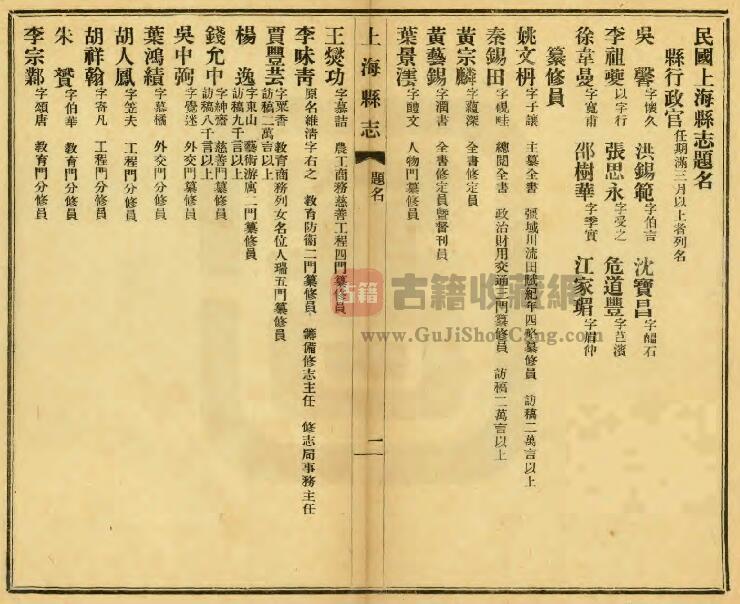 民國上海縣志題名
縣行政官任期滿三月以上者列名
吳馨字懷久 洪錫範字伯言 沈寶昌字韞石
李祖夔以字行 張思永字受之 危道豐字芑濱
徐韋曼字寬甫 邵樹華字季實 江家瑂字眉仲
纂修員
姚文枬字子讓 主纂全書 疆域川流田賦紀年四略纂修員 訪稿二萬言以上
秦錫田字硯畦 總閱全書 政治財用交通三門纂修員 訪稿二萬言以上
黃宗麟字蘊深 全書修定員
黃藝錫字潤書 全書修定員曁督刊員
葉景澐字醴文 人物門纂修員
上海縣志 題名 二
王燮功字慕詰 農工商務慈善工程四門纂修員
李味青原名維清字右之 教育防衛二門纂修員 籌備修志主任 修志局事務主任
賈豐芸字粟香 教育商務列女名位人瑞五門纂修員 訪稿二萬言以上
楊逸字東山 藝術游寓二門纂修員 訪稿九千言以上
錢允中字紳齋 慈善門纂修員 訪稿八千言以上
吳中弼字覺迷 外交門纂修員
葉鴻績字慕橘 外交門分修員
胡人鳳字笠夫 工程門分修員
胡祥翰字寄凡 工程門分修員
朱贇字伯華 教育門分修員
李宗鄴字頌唐 教育門分修員
古籍 古籍收藏網
www.GuJiShouCang.com